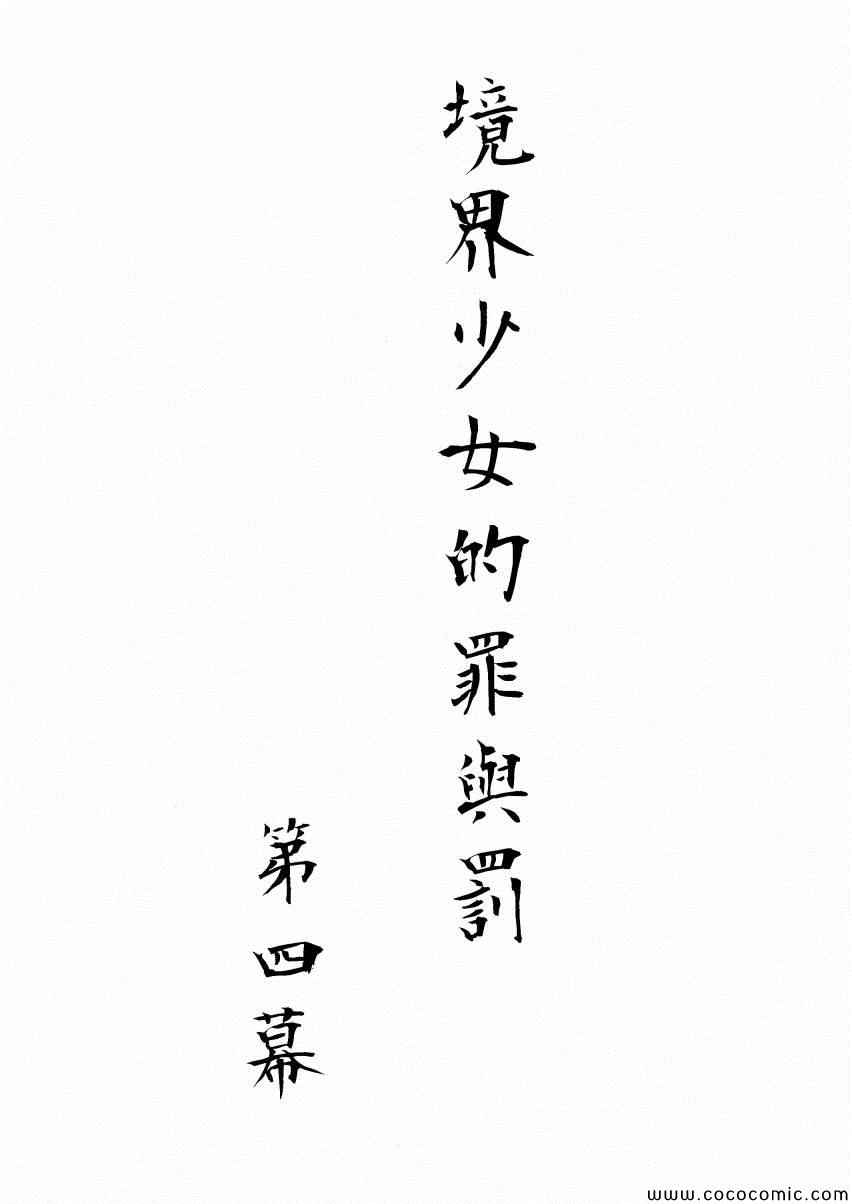 境界少女的罪與罰
第四幕
www.cococomic.com